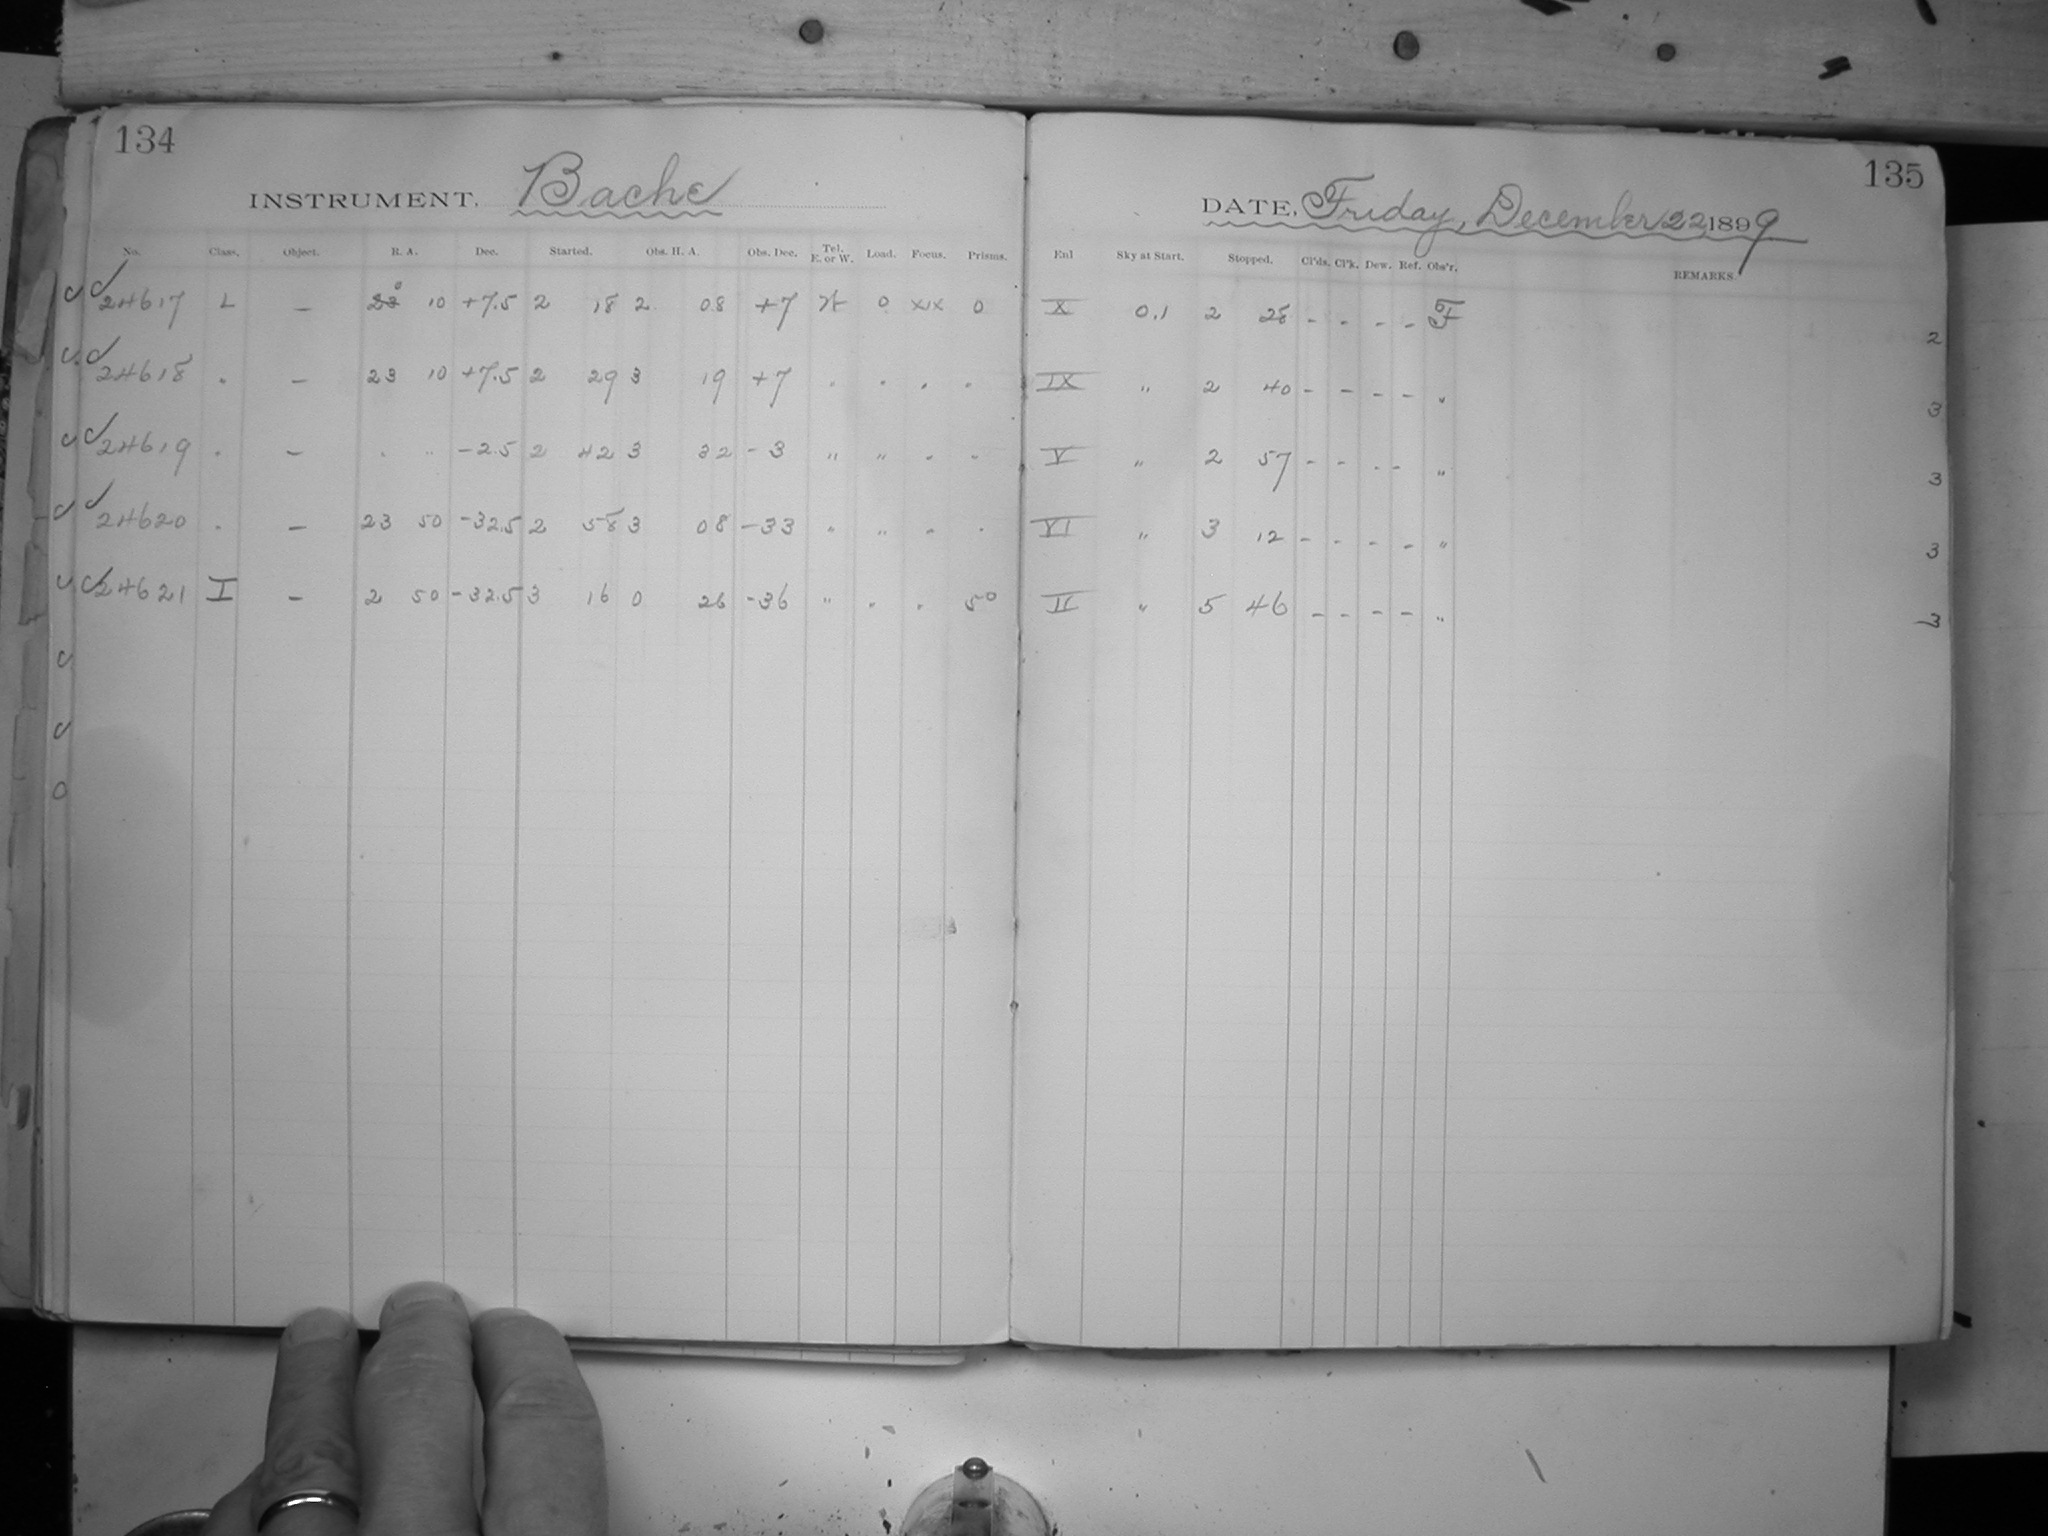 134
INSTRUMENT. Bache
No. Class. Object. R. A. Dec. Started. Obs. H. A. Obs. Dec. Tel. E. or W. Load. Focus. Prisms.
24617 L – 23 0 10 +7.5 2 18 2 08 +7 W 0 XIX 0
24618 " – 23 10 +7.5 2 29 3 19 +7 " " " "
24619 " – " " -2.5 2 42 3 32 -3 " " " "
24620 " – 23 50 -32.5 2 58 3 08 -33 " " " "
24621 I – 2 50 -32.5 3 16 0 26 -36 " " " 5°
135
DATE, Friday, December 22 1899
Enl Sky at Start. Stopped. Cl'ds. Cl'k. Dew. Ref. Obs'r. REMARKS.
X 0.1 2 28 - - - - F
2
IX " 2 40 - - - - "
3
V " 2 57 - - - - "
3
VI " 3 12 - - - - "
3
II " 5 46 - - - - "
3